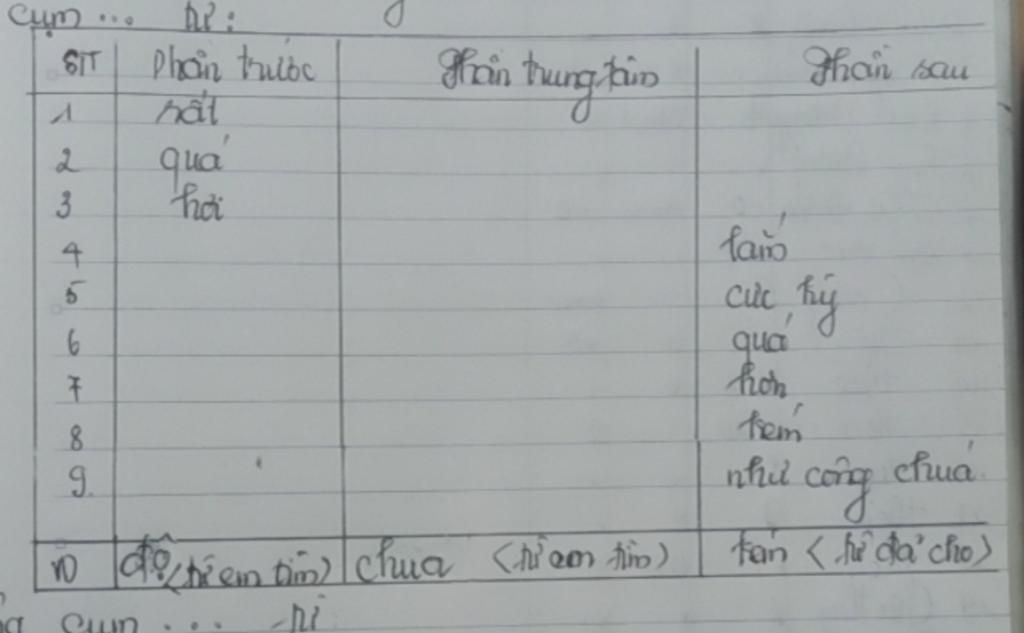 cụm ... từ:
STT Phần trước Phần trung tâm Phần sau
1 rất
2 quá
3 hơi
4 lắm
5 cực kỳ
6 quá
7 hơn
8 kém
9 như công chúa
10 độ (từ em tìm) chua (từ em tìm) (từ đã cho)
cụm ... từ